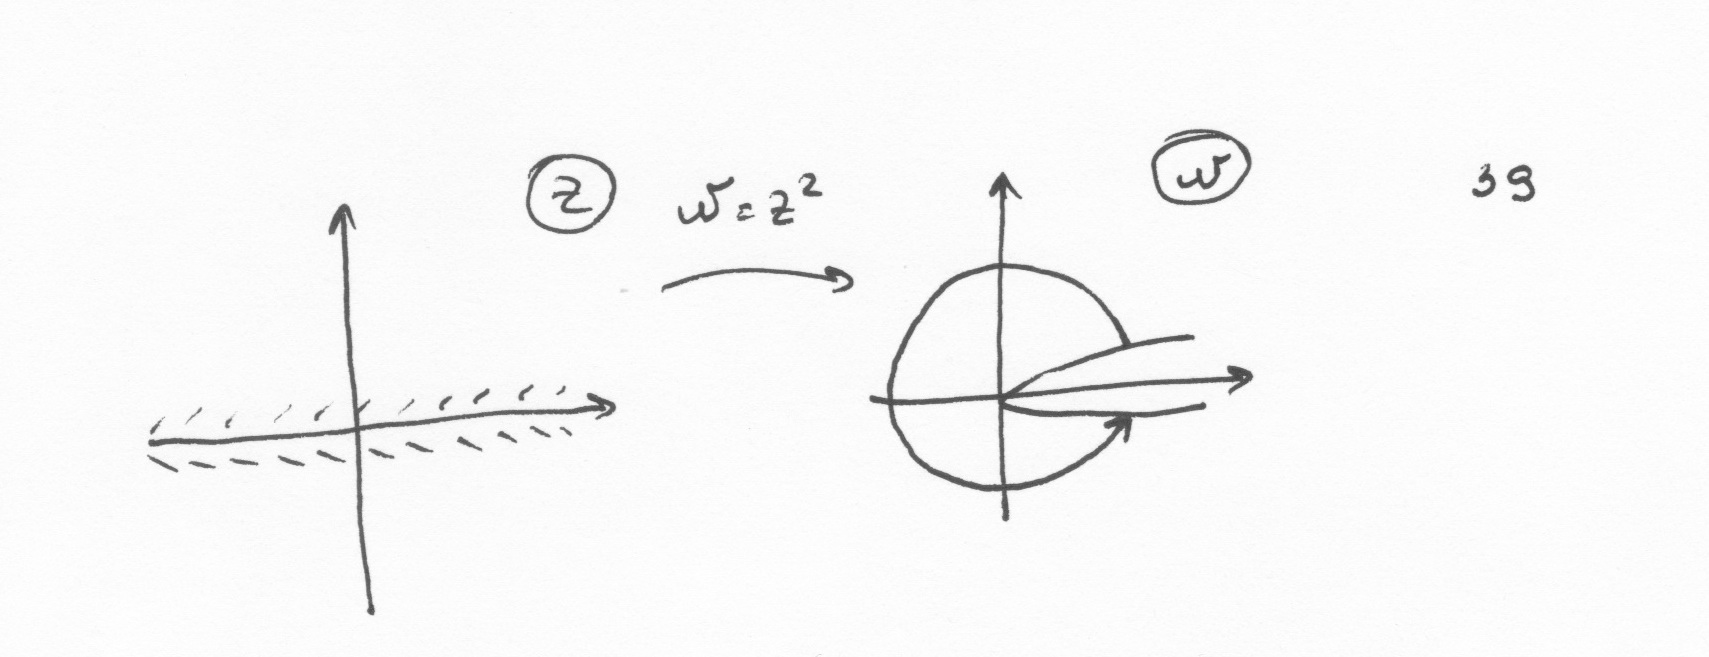 z
w = z²
w
39